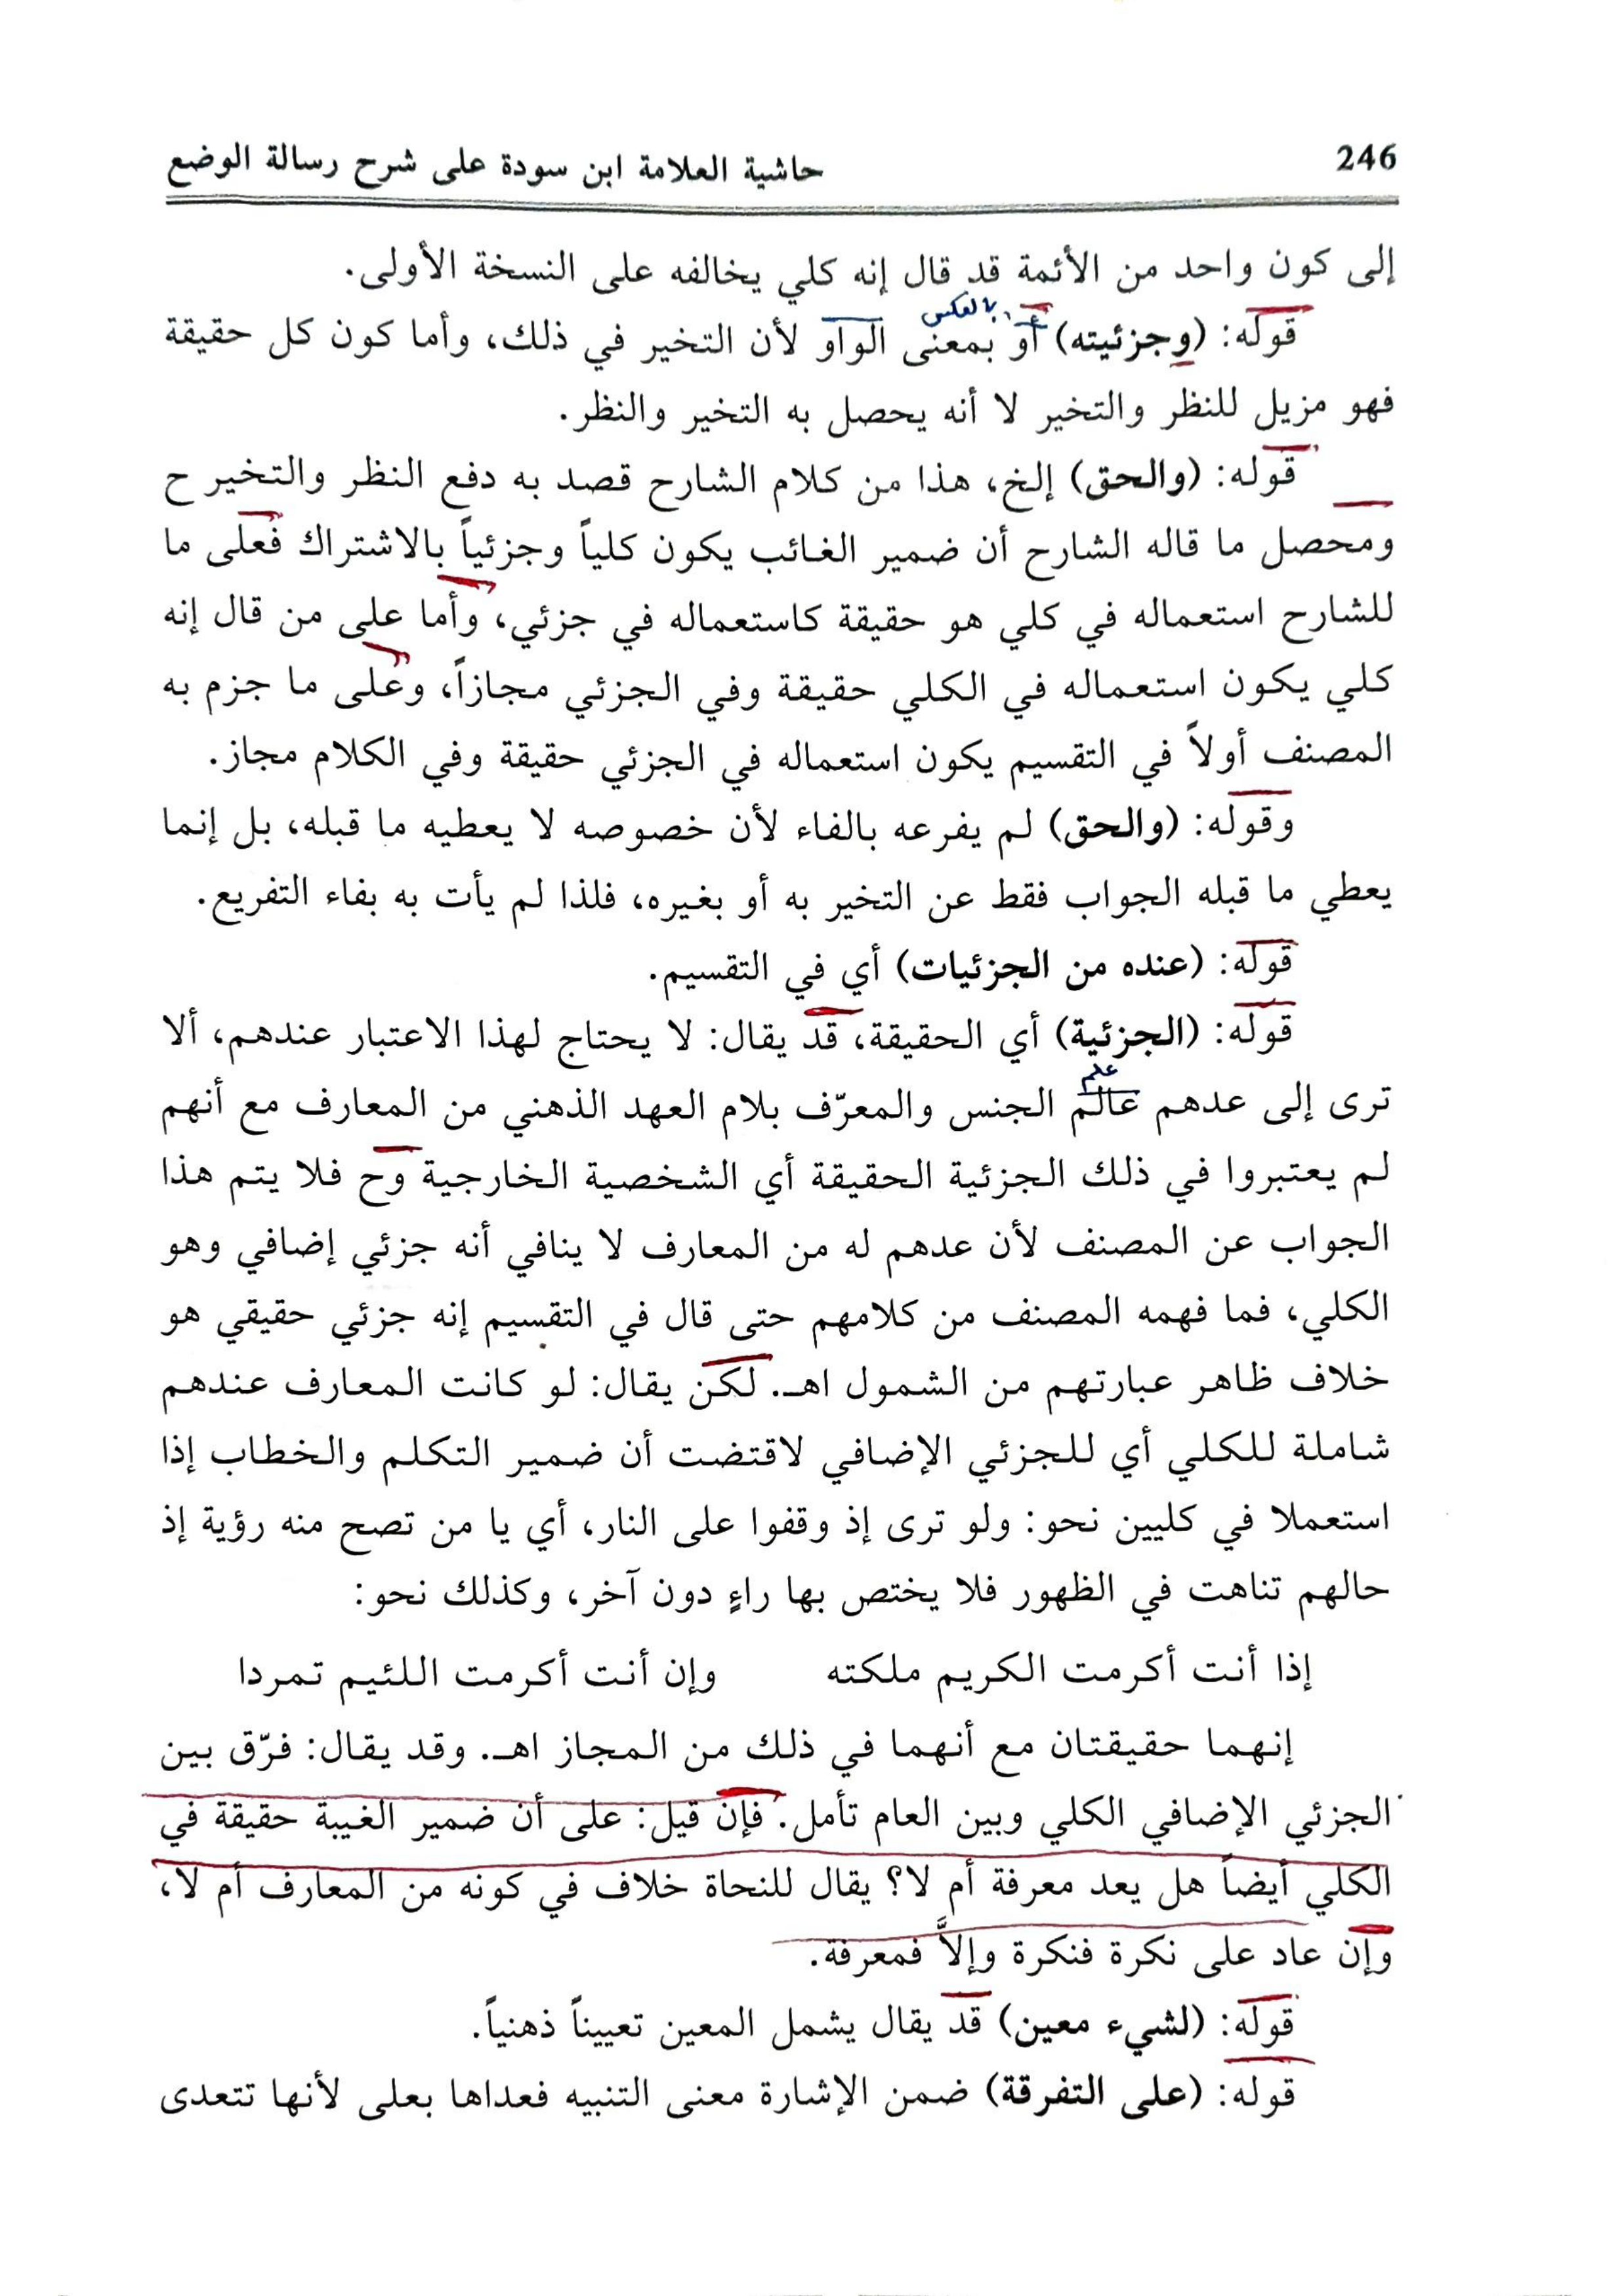 246
حاشية العلامة ابن سودة على شرح رسالة الوضع
إلى كون واحد من الأئمة قد قال إنه كلي يخالفه على النسخة الأولى.
بالعكس
قوله: (وجزئيته) أو بمعنى الواو لأن التخير في ذلك، وأما كون كل حقيقة
فهو مزيل للنظر والتخير لا أنه يحصل به التخير والنظر.
قوله: (والحق) إلخ، هذا من كلام الشارح قصد به دفع النظر والتخير ح
ومحصل ما قاله الشارح أن ضمير الغائب يكون كلياً وجزئياً بالاشتراك فعلى ما
للشارح استعماله في كلي هو حقيقة كاستعماله في جزئي، وأما على من قال إنه
كلي يكون استعماله في الكلي حقيقة وفي الجزئي مجازاً، وعلى ما جزم به
المصنف أولاً في التقسيم يكون استعماله في الجزئي حقيقة وفي الكلام مجاز.
وقوله: (والحق) لم يفرعه بالفاء لأن خصوصه لا يعطيه ما قبله، بل إنما
يعطي ما قبله الجواب فقط عن التخير به أو بغيره، فلذا لم يأت به بفاء التفريع.
قوله: (عنده من الجزئيات) أي في التقسيم.
قوله: (الجزئية) أي الحقيقة، قد يقال: لا يحتاج لهذا الاعتبار عندهم، ألا
علم
ترى إلى عدهم عالم الجنس والمعرّف بلام العهد الذهني من المعارف مع أنهم
لم يعتبروا في ذلك الجزئية الحقيقة أي الشخصية الخارجية وح فلا يتم هذا
الجواب عن المصنف لأن عدهم له من المعارف لا ينافي أنه جزئي إضافي وهو
الكلي، فما فهمه المصنف من كلامهم حتى قال في التقسيم إنه جزئي حقيقي هو
خلاف ظاهر عبارتهم من الشمول اهـ. لكن يقال: لو كانت المعارف عندهم
شاملة للكلي أي للجزئي الإضافي لاقتضت أن ضمير التكلم والخطاب إذا
استعملا في كليين نحو: ولو ترى إذ وقفوا على النار، أي يا من تصح منه رؤية إذ
حالهم تناهت في الظهور فلا يختص بها راءٍ دون آخر، وكذلك نحو:
إذا أنت أكرمت الكريم ملكته وإن أنت أكرمت اللئيم تمردا
إنهما حقيقتان مع أنهما في ذلك من المجاز اهـ. وقد يقال: فرّق بين
الجزئي الإضافي الكلي وبين العام تأمل. فإن قيل: على أن ضمير الغيبة حقيقة في
الكلي أيضاً هل يعد معرفة أم لا؟ يقال للنحاة خلاف في كونه من المعارف أم لا،
وإن عاد على نكرة فنكرة وإلاَّ فمعرفة.
قوله: (لشيء معين) قد يقال يشمل المعين تعييناً ذهنياً.
قوله: (على التفرقة) ضمن الإشارة معنى التنبيه فعداها بعلى لأنها تتعدى